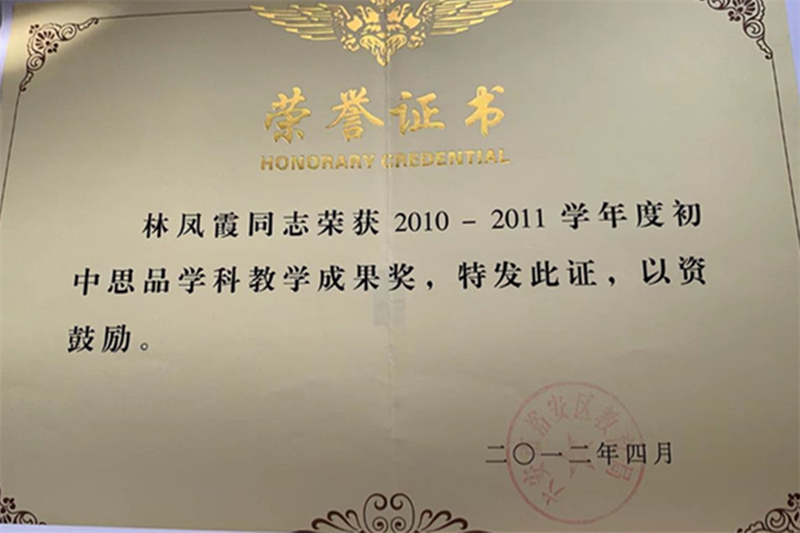 荣誉证书
HONORARY CREDENTIAL
林凤霞同志荣获2010-2011学年度初
中思品学科教学成果奖，特发此证，以资
鼓励。
六安市裕安区教育局
二〇一二年四月